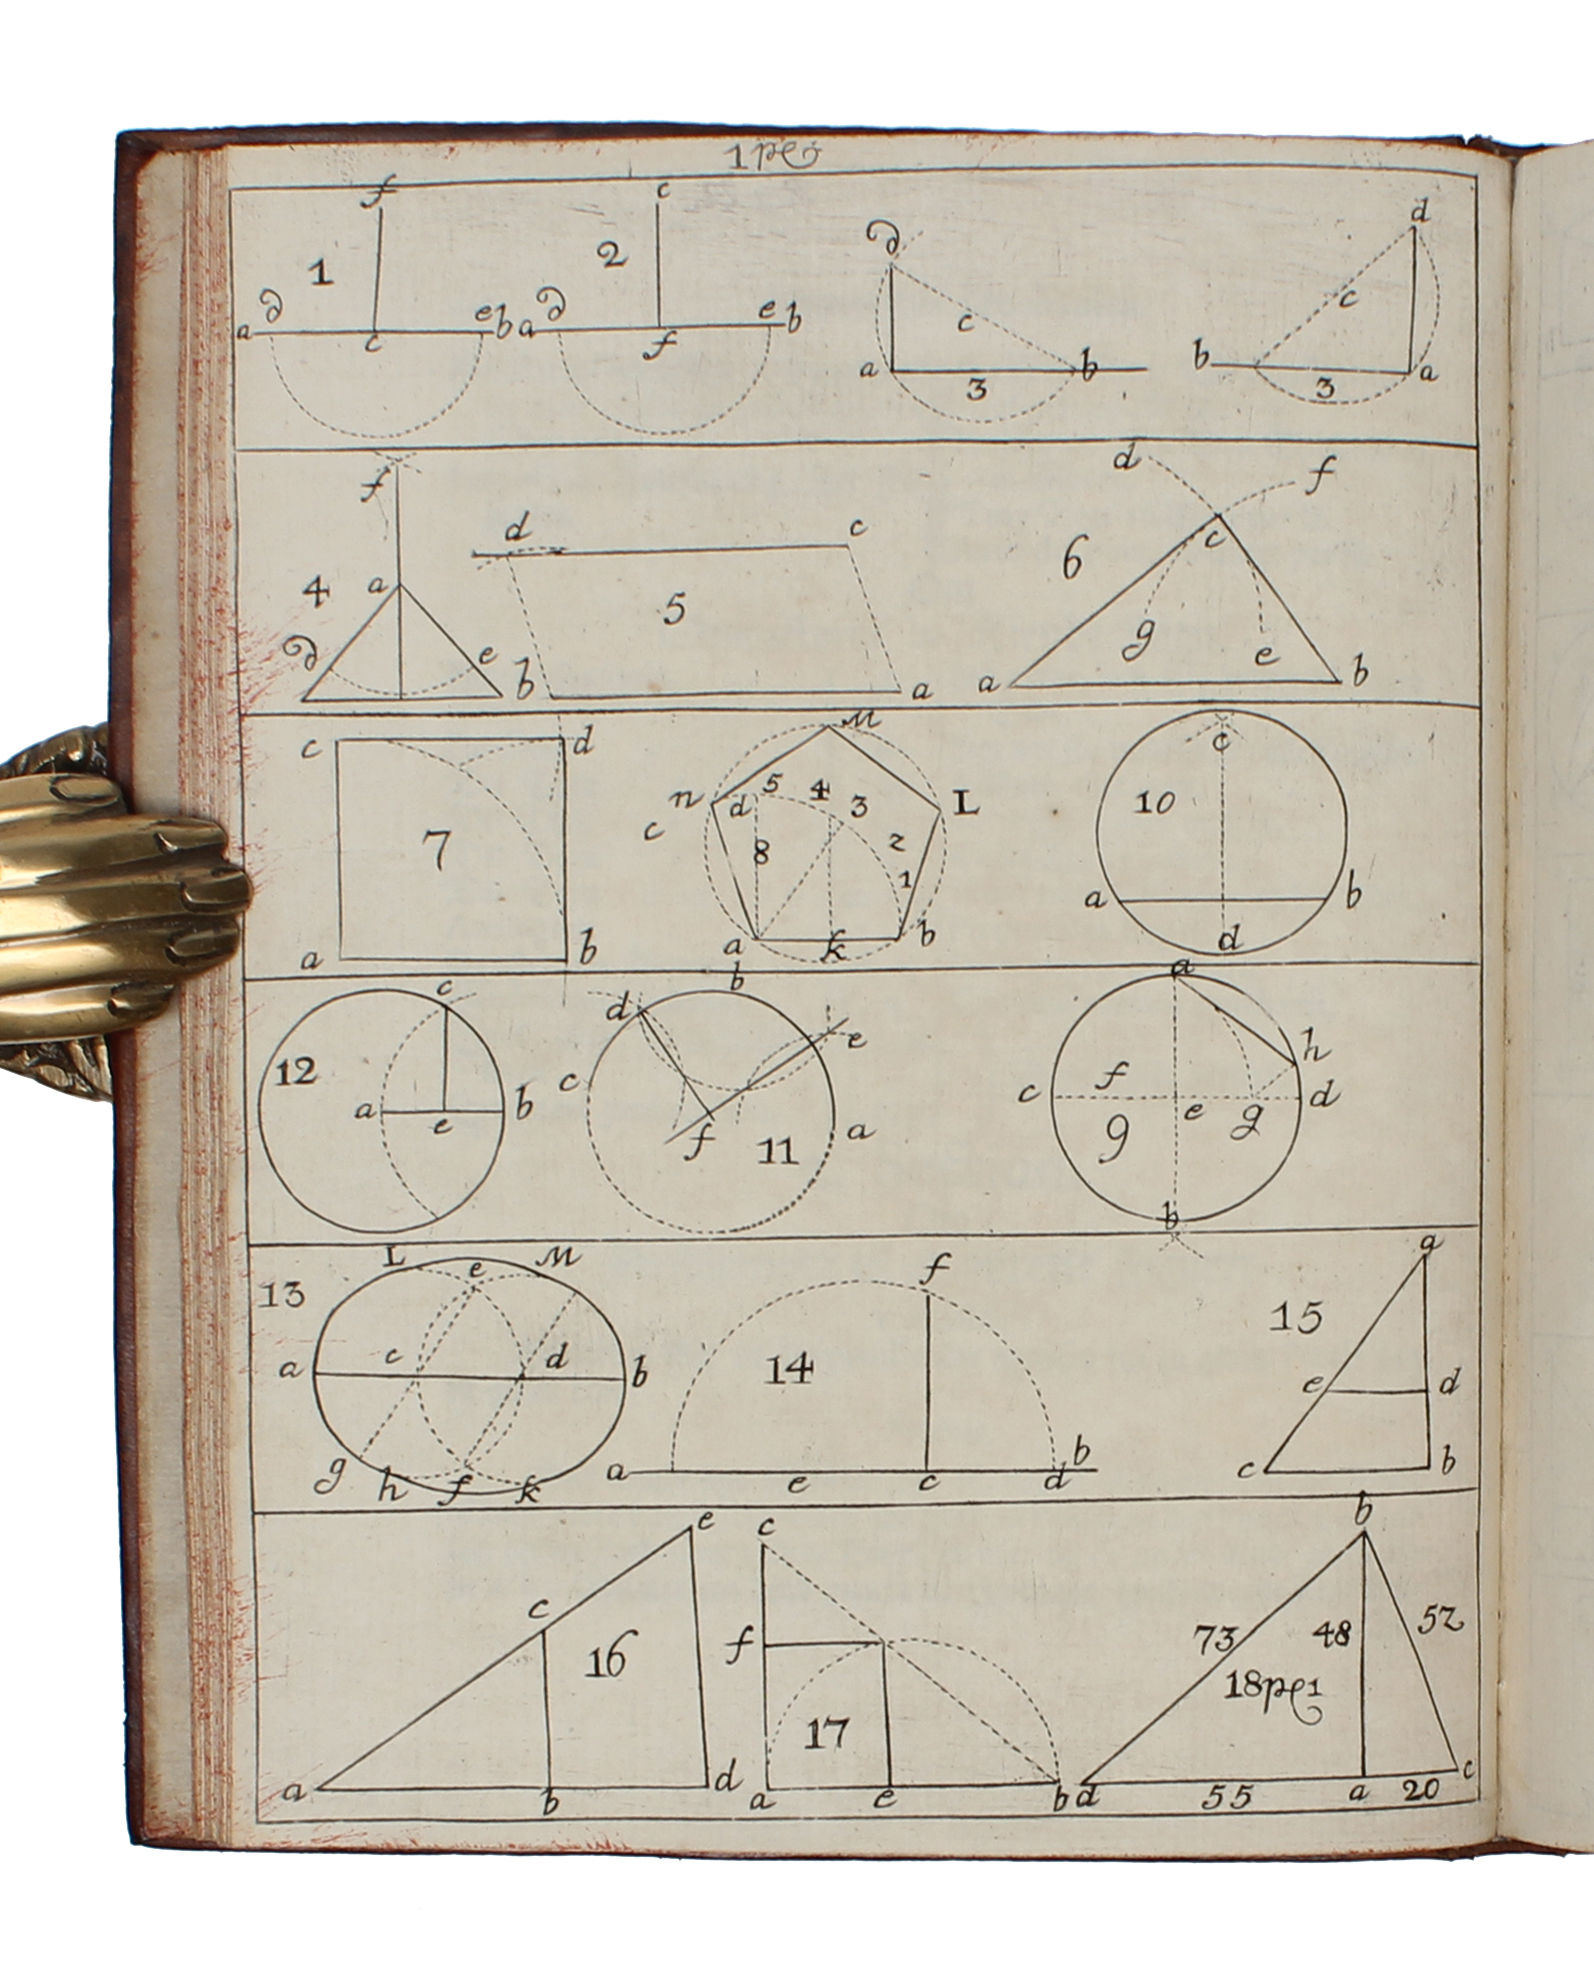 1pe
f c
1 2 d d
d e d e c c
a c b a f b a 3 b b 3 a
f d f
d c c
4 a 5 6
d e g e
b a a b
c d M
n d 5 4 3 L c
c 8 2 10
7 1 a b
a b a k b d
c b a
d e h
12 c f
a e b f 11 a c e g d
9
b
L e M f a
13 15
a c d b 14 e d
g h f k a e c d b c b
e c b
c 16 f 73 48 52
17 18pe1
a b d a e b d 55 a 20 c